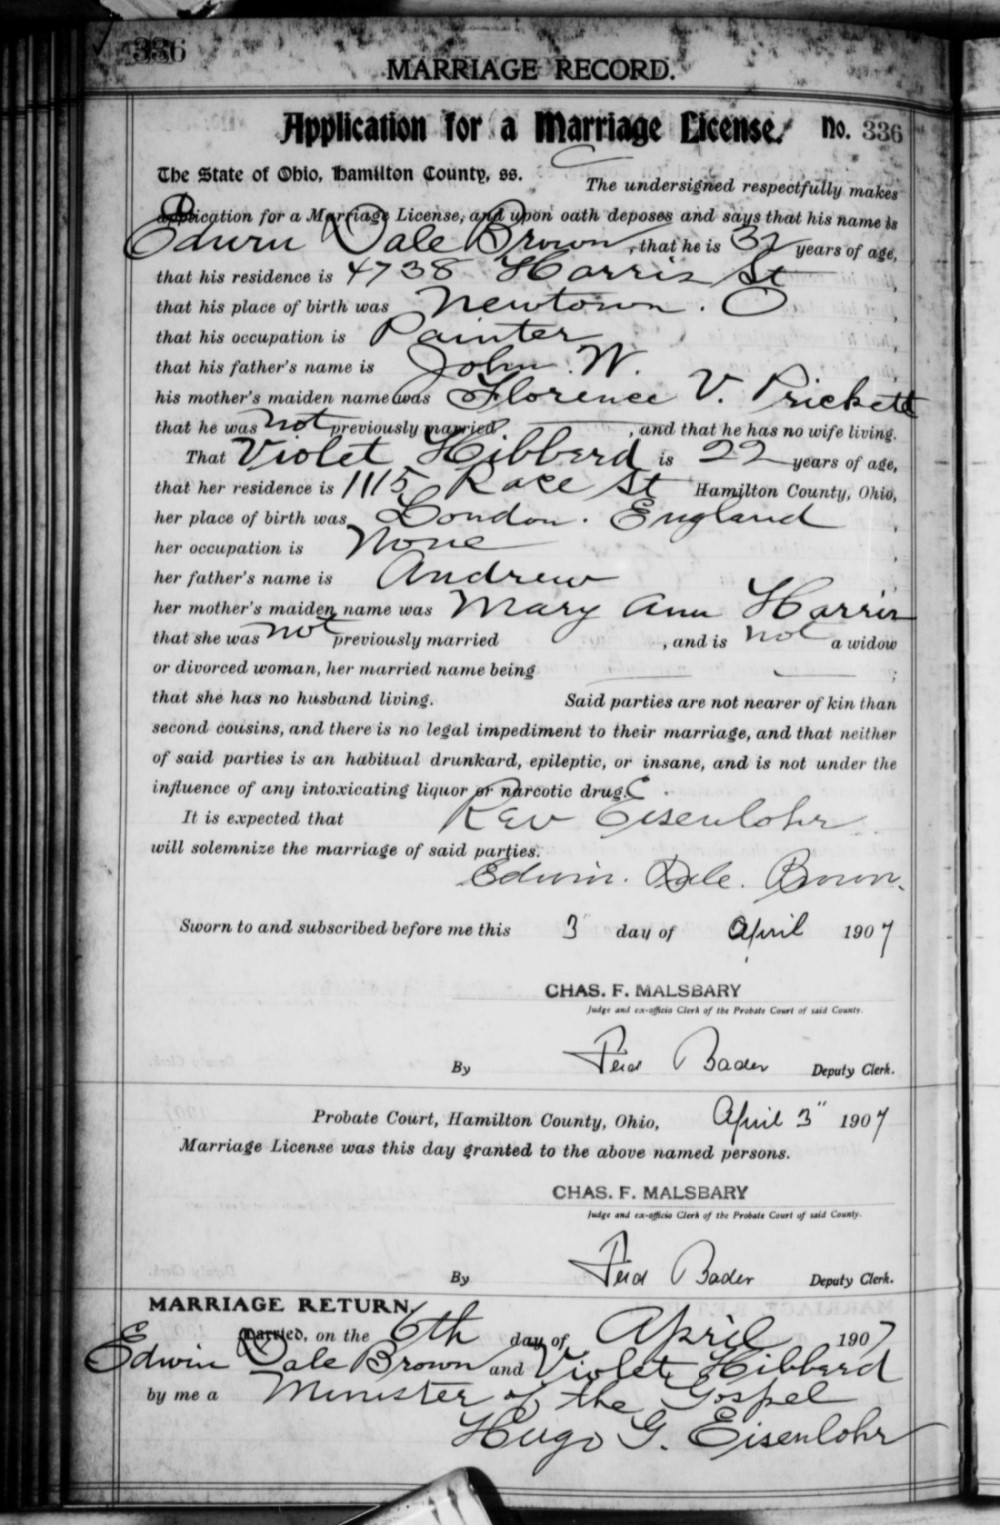 336
MARRIAGE RECORD.
Application for a Marriage License. No. 336
The State of Ohio, Hamilton County, ss.
The undersigned respectfully makes
application for a Marriage License, and upon oath deposes and says that his name is
Edwin Dale Brown, that he is 32 years of age,
that his residence is 4738 Harris St
that his place of birth was Newtown. O
that his occupation is Painter,
that his father's name is John W.
his mother's maiden name was Florence V. Prickett
that he was not previously married , and that he has no wife living.
That Violet Hibberd is 22 years of age,
that her residence is 1115 Race St Hamilton County, Ohio,
her place of birth was London. England ,
her occupation is None ,
her father's name is Andrew
her mother's maiden name was Mary Ann Harris
that she was not previously married , and is not a widow
or divorced woman, her married name being ;
that she has no husband living. Said parties are not nearer of kin than
second cousins, and there is no legal impediment to their marriage, and that neither
of said parties is an habitual drunkard, epileptic, or insane, and is not under the
influence of any intoxicating liquor or narcotic drug.
It is expected that Rev Eisenlohr
will solemnize the marriage of said parties.
Edwin. Dale. Brown.
Sworn to and subscribed before me this 3" day of April 1907
CHAS. F. MALSBARY
Judge and ex-officio Clerk of the Probate Court of said County.
By Ferd Bader Deputy Clerk.
Probate Court, Hamilton County, Ohio, April 3" 1907
Marriage License was this day granted to the above named persons.
CHAS. F. MALSBARY
Judge and ex-officio Clerk of the Probate Court of said County.
By Ferd Bader Deputy Clerk.
MARRIAGE RETURN.
Married, on the 6th day of April 1907
Edwin Dale Brown and Violet Hibberd
by me a Minister of the Gospel
Hugo G. Eisenlohr